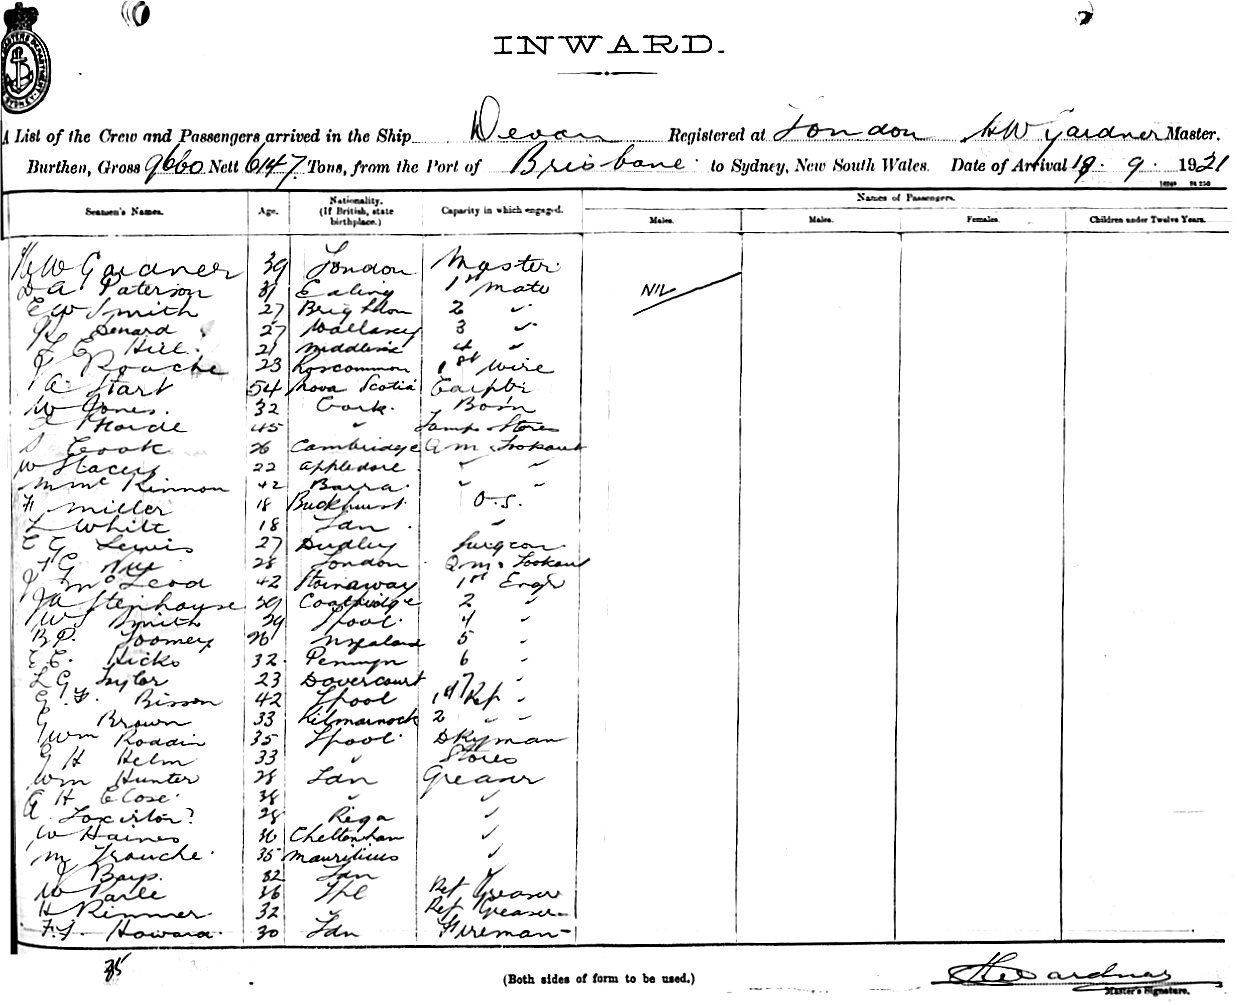 INWARD.
A List of the Crew and Passengers arrived in the Ship Devon Registered at London HW Gardner Master.
Burthen, Gross 9660 Nett 6147 Tons, from the Port of Brisbane to Sydney, New South Wales. Date of Arrival 19. 9. 1921
Seamen's Names. Age. Nationality. (If British, state birthplace.) Capacity in which engaged. Names of Passengers.
Males. Males. Females. Children under Twelve Years.
HW Gardner 39 London Master
D A Paterson 31 Ealing 1st Mate NIL
E W Smith 27 Brighton 2 "
Denard 27 Wallasey 3 "
E Hill 21 Middlesex 4 "
J Roache 23 Roscommon 1st Wire
A Start 54 Nova Scotia
W Jones. 32 Cork. Bosn
45 " Lamps Stores
S Cook 26 Cambridge Q M & Lookout
W Stacey 22 Appledore " "
M McKinnon 42 Barra " "
F Miller 18 Buckhurst O.S.
L White 18 Ldn "
E G Lewis 27 Dudley Surgeon
F G 28 London Q M & Lookout
J McLeod 42 Stornoway 1st Engr
J A Stenhouse 39 Coatbridge 2 "
W S Smith 29 Lpool 4 "
B P. Toomey 26 N Zealand 5 "
E E. Hicks 32 Penryn 6 "
L G Taylor 23 Dovercourt 7 "
G. F. Bisson 42 Lpool 1st Ref "
G Brown 33 Kilmarnock 2 " "
Wm Roddin 35 Lpool Dkyman
G H Helm 33 " Stores
Wm Hunter 28 Ldn Greaser
A H Close 38 " "
A 28 Riga "
W Haines 36 Cheltenham "
M Trouche 35 Mauritius "
J Bays. 32 Ldn "
W Parle 36 Lpl Ref Greaser
H Rimmer 32 Ref Greaser
F. J. Howard 30 Ldn Fireman
35
(Both sides of form to be used.)
HW Gardner
Master's Signature.